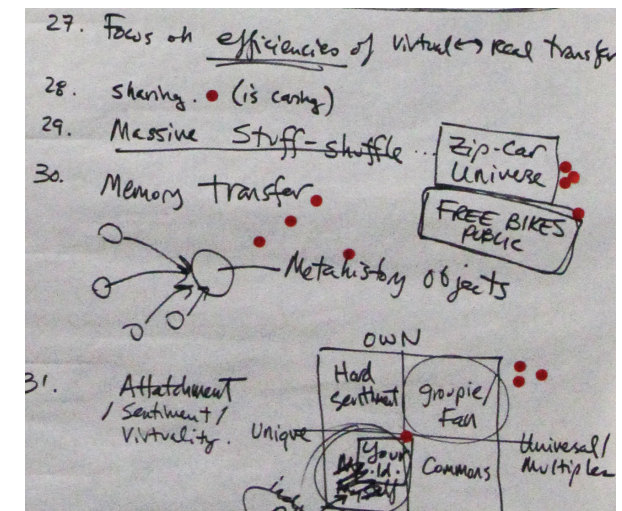 27. Focus on efficiencies of virtual ↔ real transfer
28. sharing. (is caring)
29. Massive Stuff-shuffle ...
Zip-Car
Universe
FREE BIKES
PUBLIC
30. Memory transfer
Metahistory objects
31. Attatchment
/ Sentiment /
Virtuality.
OWN
Hard
sentiment
groupie/
Fan
Unique
Universal/
Multiples
Your
self
Commons